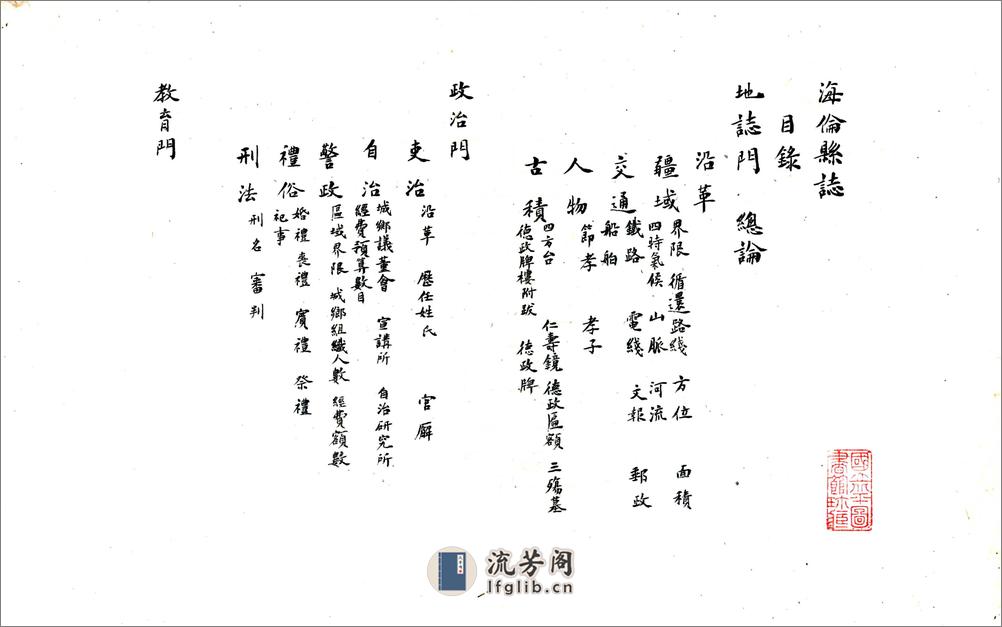 海倫縣誌
目錄
地誌門 總論
沿革
疆域 界限 循還路綫 方位 面積
四特氣候 山脈 河流
交通 鐵路 電綫 文報 郵政
船舶
人物 節孝 孝子
古積 四方台 仁壽鏡 德政區額 三殤墓
德政牌樓附跋 德政牌
政治門
吏治 沿革 歷任姓氏 官廨
自治 城鄉議董會 宣講所 自治研究所
經費預算數目
警政 區域界限 城鄉組織人數 經費額數
禮俗 婚禮 喪禮 賓禮 祭禮
祀事
刑法 刑名 審判
教育門
流芳阁
lfglib.cn